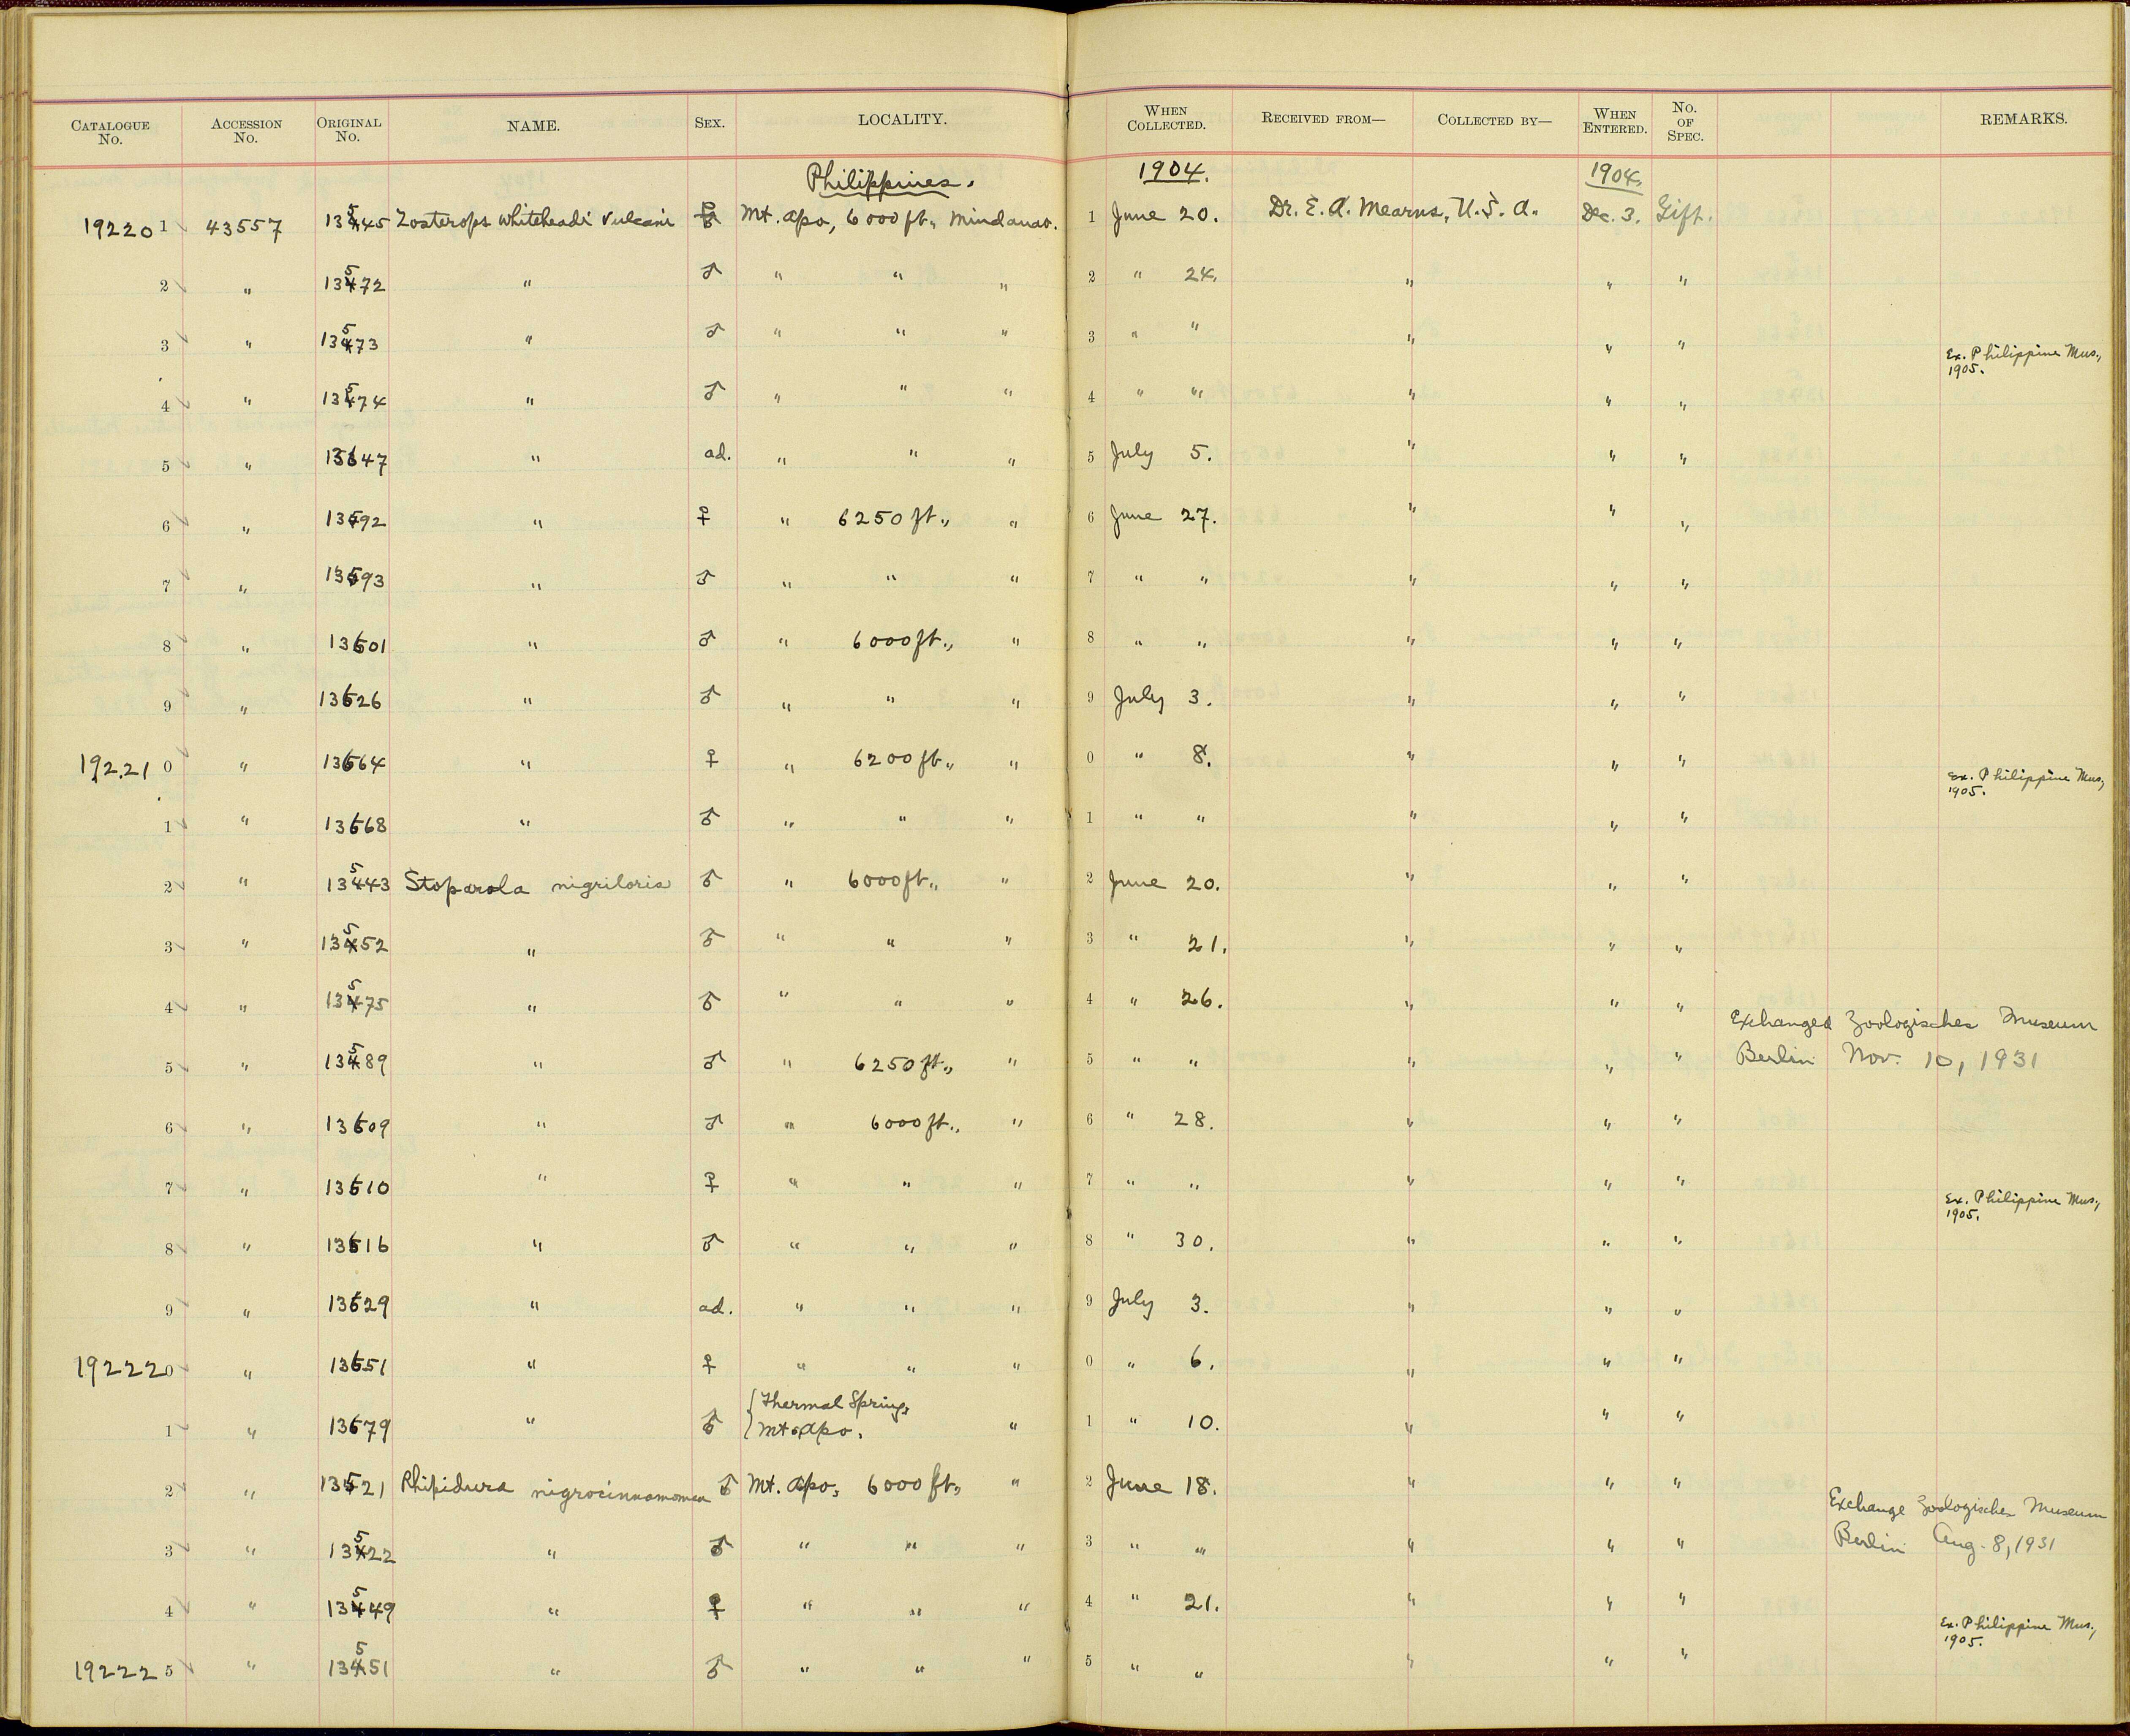 CATALOGUE No. ACCESSION No. ORIGINAL No. NAME. SEX. LOCALITY. WHEN COLLECTED. RECEIVED FROM— COLLECTED BY— WHEN ENTERED. No. OF SPEC. REMARKS.
Philippines. 1904. 1904.
19220 1 43557 13545 Zosterops whiteheadi vulcani ♀ Mt. Apo, 6000 ft., Mindanao. 1 June 20. Dr. E. A. Mearns, U.S.A. Dec. 3. Gift.
2 " 13572 " ♂ " " " 2 " 24. " " "
3 " 13573 " ♂ " " " 3 " " " " "
Ex. Philippine Mus., 1905.
4 " 13574 " ♂ " " " 4 " " " " "
5 " 13647 " ad. " " " 5 July 5. " " "
6 " 13592 " ♀ " 6250 ft., " 6 June 27. " " "
7 " 13593 " ♂ " " " 7 " " " " "
8 " 13601 " ♂ " 6000 ft., " 8 " " " " "
9 " 13626 " ♂ " " " 9 July 3. " " "
19221 0 " 13664 " ♀ " 6200 ft., " 0 " 8. " " "
Ex. Philippine Mus., 1905.
1 " 13668 " ♂ " " " 1 " " " " "
2 " 13543 Stoparola nigriloris ♂ " 6000 ft., " 2 June 20. " " "
3 " 13552 " ♂ " " " 3 " 21. " " "
4 " 13575 " ♂ " " " 4 " 26. " " "
Exchanged Zoologisches Museum
5 " 13589 " ♂ " 6250 ft., " 5 " " " " " Berlin Nov. 10, 1931
6 " 13609 " ♂ " 6000 ft., " 6 " 28. " " "
7 " 13610 " ♀ " " " 7 " " " " "
Ex. Philippine Mus., 1905.
8 " 13616 " ♂ " " " 8 " 30. " " "
9 " 13629 " ad. " " " 9 July 3. " " "
19222 0 " 13651 " ♀ " " " 0 " 6. " " "
1 " 13679 " ♂ {Thermal Springs, Mt. Apo. " 1 " 10. " " "
2 " 13521 Rhipidura nigrocinnamomea ♂ Mt. Apo, 6000 ft., " 2 June 18. " " "
Exchange Zoologisches Museum
3 " 13522 " ♂ " " " 3 " " " " " Berlin Aug. 8, 1931
4 " 13549 " ♀ " " " 4 " 21. " " "
Ex. Philippine Mus., 1905.
19222 5 " 13551 " ♂ " " " 5 " " " " "